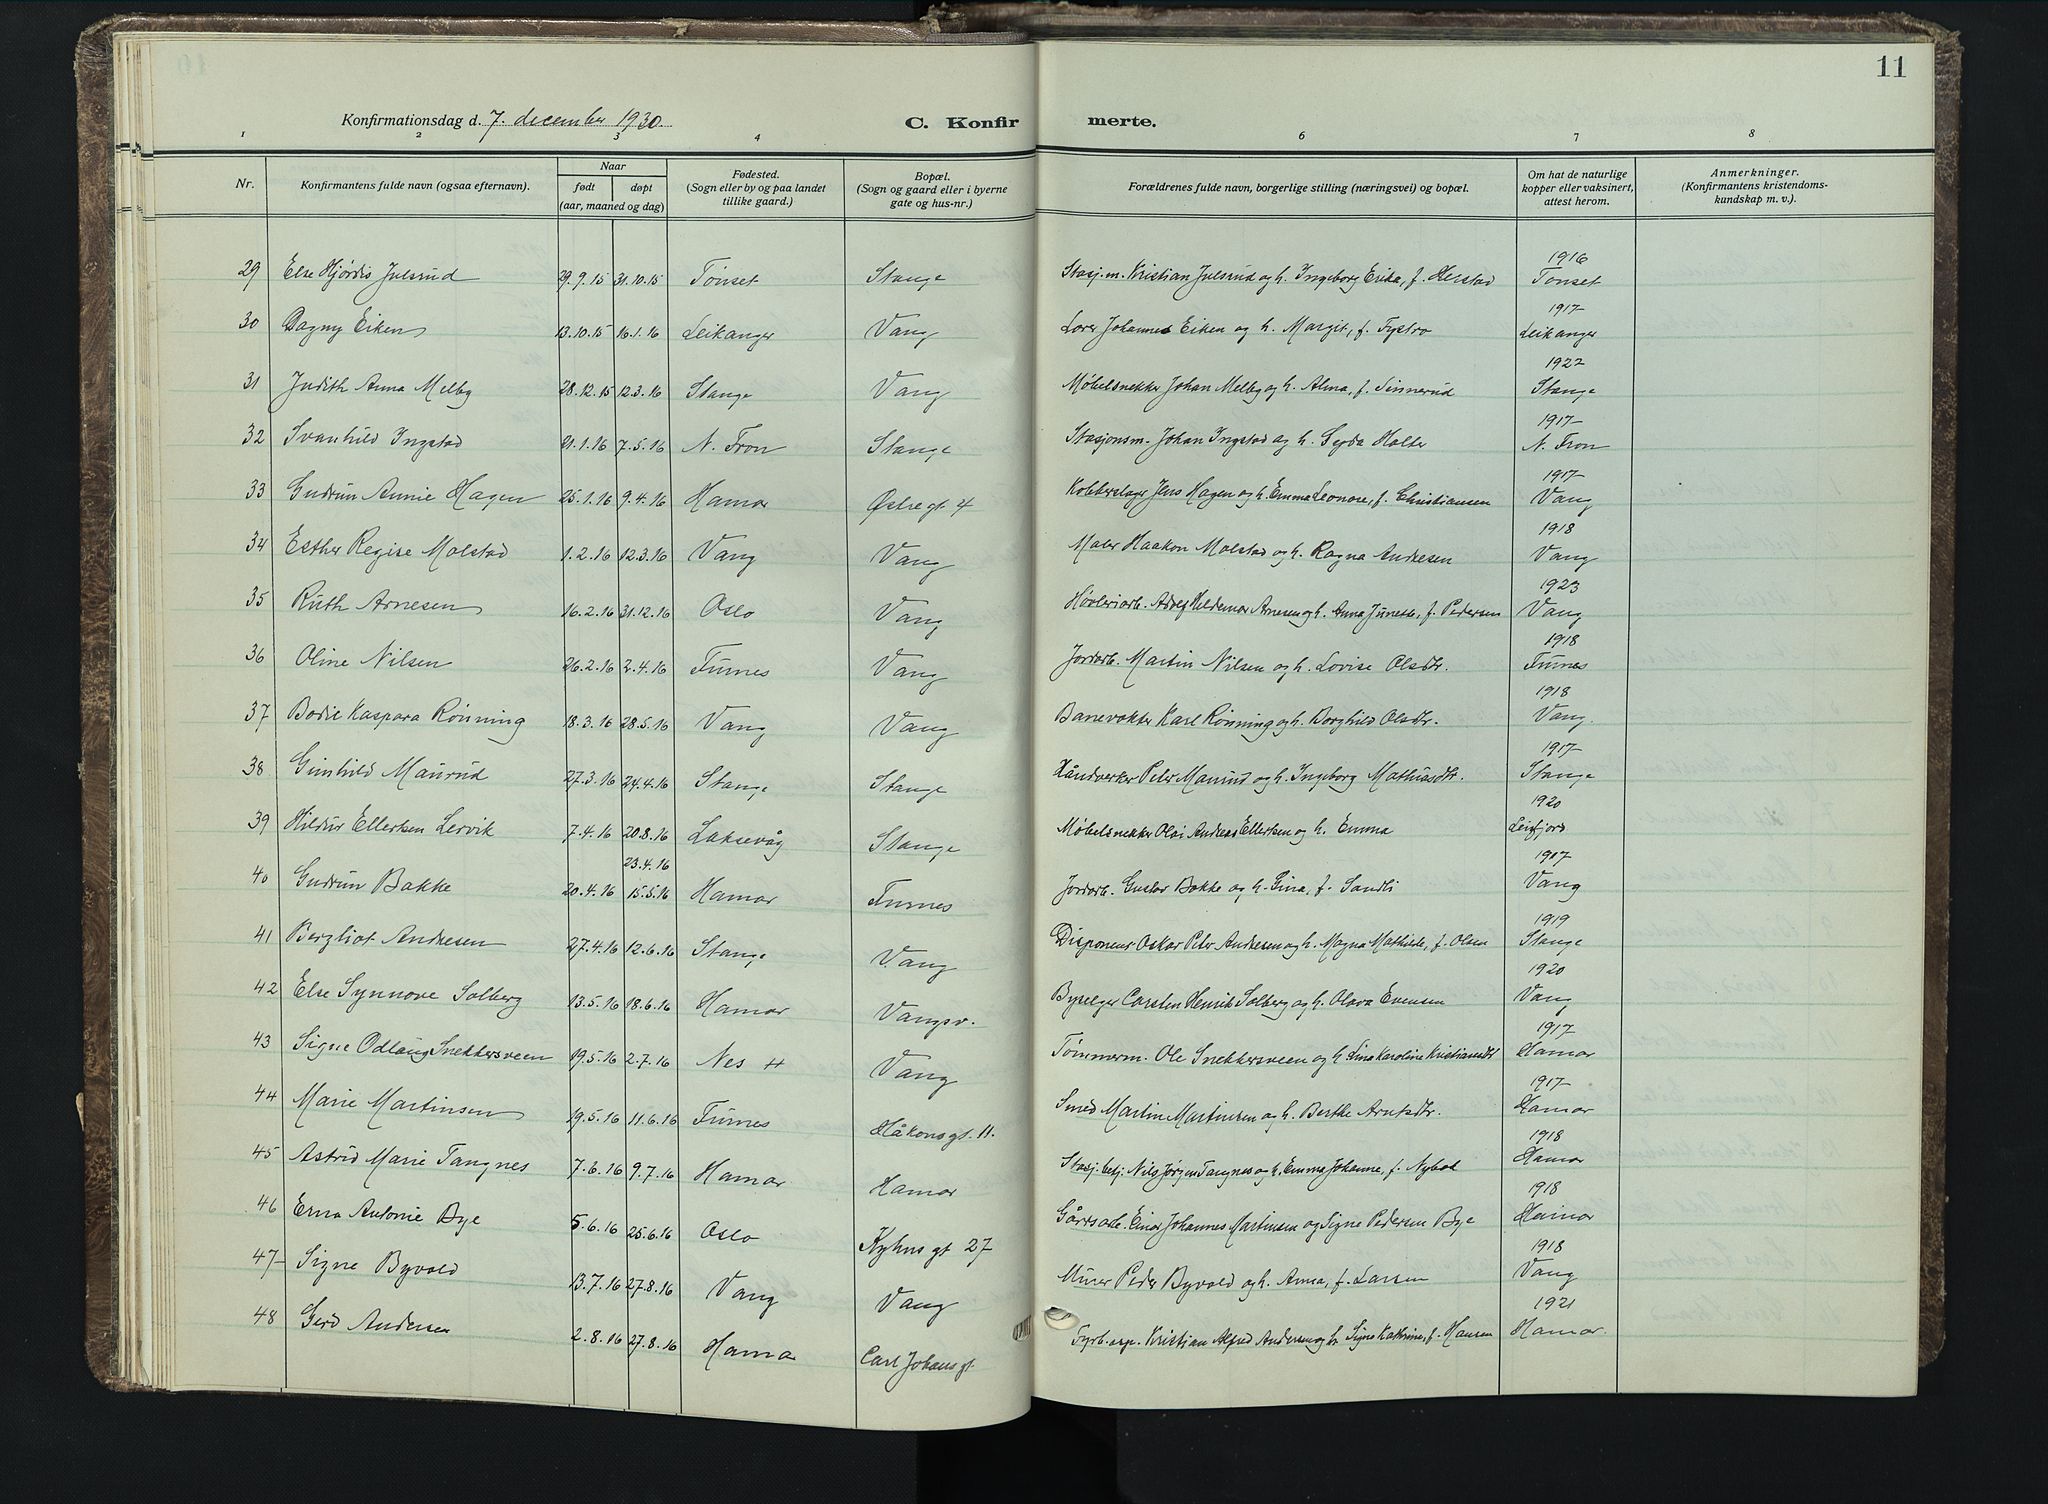 11
Konfirmationsdag d. 7. december 1930.
C. Konfirmerte.
1 2 3 4 6 7 8
Nr. Konfirmantens fulde navn (ogsaa efternavn). Naar født døpt (aar, maaned og dag) Fødested. (Sogn eller by og paa landet tillike gaard.) Bopæl. (Sogn og gaard eller i byerne gate og hus-nr.) Forældrenes fulde navn, borgerlige stilling (næringsvei) og bopæl. Om hat de naturlige kopper eller vaksinert, attest herom. Anmerkninger. (Konfirmantens kristendomskundskap m. v.).
29 Else Hjørdis Julsrud 29.9.15 31.10.15 Tønset Stange Stasj.m. Kristian Julsrud og h. Ingeborg Erika, f. Herstad 1916 Tønset
30 Dagny Eiken 13.10.15 16.1.16 Leikanger Vang Lærer Johannes Eiken og h. Margit, f. Tystro 1917 Leikanger
31 Judith Anna Melby 28.12.15 12.3.16 Stange Vang Møbelsnekker Johan Melby og h. Alma, f. Sinnerud 1922 Stange
32 Svanhild Ingstad 21.1.16 7.5.16 N. Fron Stange Stasjonsm. Johan Ingstad og h. Halter 1917 N. Fron
33 Gudrun Annie Hagen 25.1.16 9.4.16 Hamar Østregt. 4 Kobberslager Jens Hagen og h. Emma Leonore, f. Christiansen 1917 Vang
34 Esther Regise Molstad 1.2.16 12.3.16 Vang Vang Maler Haakon Molstad og h. Ragna Andresen 1918 Vang
35 Ruth Arnesen 16.2.16 31.12.16 Oslo Vang Høvleriarb. Adolf Heldemar Arnesen og h. Anna Junette, f. Pedersen 1923 Vang
36 Oline Nilsen 26.2.16 2.4.16 Furnes Vang Jordarb. Martin Nilsen og h. Lovise Olsdtr. 1918 Furnes
37 Bodil Kaspara Rønning 18.3.16 28.5.16 Vang Vang Banevokter Karl Rønning og h. Borghild Olsdtr. 1918 Vang.
38 Gunhild Maurud 27.3.16 24.4.16 Stange Stange Håndverker Peter Maurud og h. Ingeborg Mathiasdtr. 1917 Stange
39 Hildur Ellertsen Lervik 7.4.16 20.8.16 Laksevåg Stange Møbelsnekker Olai Andreas Ellertsen og h. Emma 1920 Leirfjord
40 Gudrun Bakke 20.4.16 23.4.16 15.5.16 Hamar Furnes Jordarb. Gustav Bakke og h. Gina, f. Sandli 1917 Vang
41 Bergliot Andresen 27.4.16 12.6.16 Stange Vang Disponent Oskar Peter Andresen og h. Magna Mathilde, f. Olsen 1919 Stange
42 Else Synnøve Solberg 13.5.16 18.6.16 Hamar Vangsv. Byselger Carsten Henrik Solberg og h. Olava Evensen 1920 Vang
43 Signe Odlaug Snekkersveen 19.5.16 2.7.16 Nes H Vang Tømmerm. Ole Snekkersveen og h. Lina Karoline Kristiansdtr 1917 Hamar
44 Marie Martinsen 19.5.16 11.6.16 Furnes Håkonsgt. 11. Smed Martin Martinsen og h. Berthe Arntsdtr. 1917 Hamar
45 Astrid Marie Tangnes 7.6.16 9.7.16 Hamar Hamar Stasj.betj. Nils Jørgen Tangnes og h. Emma Johanne, f. Nybak 1918 Hamar
46 Erna Antonie Bye 5.6.16 25.6.16 Oslo Kyhns gt 27 Gårdsarb. Einar Johannes Martinsen og Signe Pedersen Bye 1918 Hamar
47 Signe Byvold 13.7.16 27.8.16 Vang Vang Murer Peder Byvold og h. Anna, f. Larsen 1918 Vang
48 Gerd Andersen 2.8.16 27.8.16 Hamar Carl Johans gt. Fyrb.asp. Kristian Alfred Andersen og h. Signe Kathrine, f. Hansen 1921 Hamar.